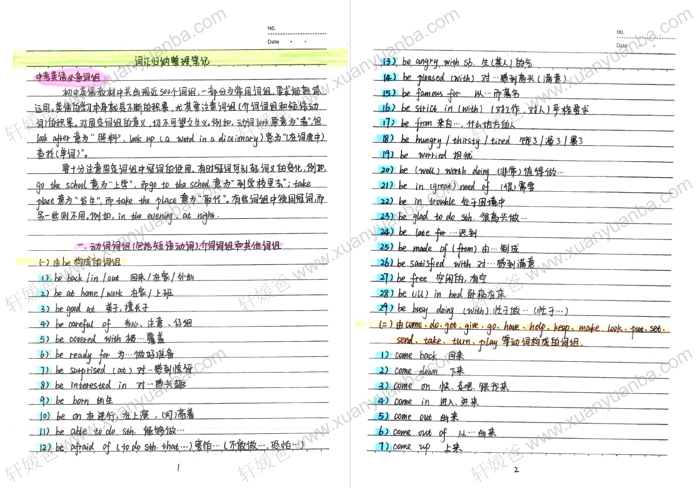 No.
Date
词汇归纳整理笔记
中考英语必备词组
初中英语教材中共出现近500个词组,一部分为常用词组,要求能熟练
运用。英语的学习本身就是不断的积累,尤其要注意词组(介词词组和短语动
词)的积累,并巩固词组的意义,切不可望文生义。例如,动词look原意为"看",但
look after意为"照料",look up (a word in a dictionary)意为"(在词典中)
查找(单词)"。
要十分注意固定词组中冠词的使用,有时冠词可引起词义的变化,例如,
go the school意为"上学",而go to the school意为"到学校里去";take
place意为"发生",而take the place意为"取代"。有些词组中使用冠词,而
另一些则不用,例如,in the evening, at night.
一、动词词组(包括短语动词)、介词词组和其他词组
(一)由be构成的词组
1) be back/in/out 回来/在家/外出
2) be at home/work 在家/上班
3) be good at 善于,擅长于
4) be careful of 当心、注意、仔细
5) be covered with 被…覆盖
6) be ready for 为…做好准备
7) be surprised (at) 对…感到惊讶
8) be interested in 对…感兴趣
9) be born 出生
10) be on 在进行,在上演,(灯)亮着
11) be able to do sth. 能够做…
12) be afraid of (to do sth. that…) 害怕…(不敢做…,恐怕…)
1
No.
Date
13) be angry with sb. 生(某人)的气
14) be pleased (with) 对…感到高兴(满意)
15) be famous for 以…而著名
16) be strict in (with) (对工作,对人)严格要求
17) be from 来自…,什么地方的人
18) be hungry/thirsty/tired 饿了/渴了/累了
19) be worried 担忧
20) be (well) worth doing (非常)值得做…
21) be in (great) need of (很)需要
22) be in trouble 处于困境中
23) be glad to do sth. 很高兴做…
24) be late for …迟到
25) be made of (from) 由…制成
26) be satisfied with 对…感到满意
27) be free 空闲的,有空
28) be (ill) in bed 卧病在床
29) be busy doing (with) 忙于做…(忙于…)
(二)由come、do、get、give、go、have、help、keep、make、look、put、set、
send、take、turn、play等动词构成的词组
1) come back 回来
2) come down 下来
3) come on 快,走吧,跟我来
4) come in 进入,进来
5) come out 出来
6) come out of 从…出来
7) come up 上来
2
轩媛爸 www.xuanyuanba.com